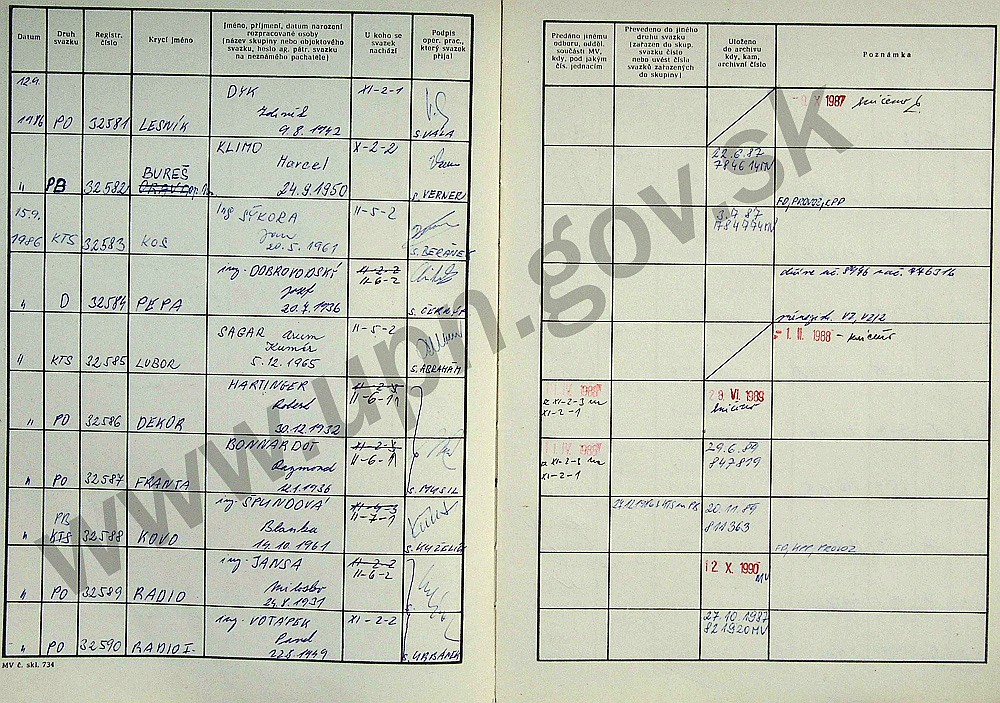 Datum
Druh svazku
Registr. číslo
Krycí jméno
Jméno, příjmení, datum narození
rozpracované osoby
(název skupiny nebo objektového
svazku, heslo ag. pátr. svazku
na neznámého pachatele)
U koho se svazek nachází
Podpis oper. prac., který svazek přijal
Předáno jinému
odboru, odděl.
součásti MV,
kdy, pod jakým
čís. jednacím
Převedeno do jiného
druhu svazku
(zařazen do skup.
svazku číslo
nebo uvést čísla
svazků zařazených
do skupiny)
Uloženo
do archivu
kdy, kam,
archivní číslo
Poznámka
12.9.
1986 PO 32581 LESNÍK
DYK
Zdeněk
9.8.1942
XI-2-1
S. VALA
X 1987 zničeno
" PB 32582 BUREŠ
KLIMO
Marcel
24.9.1950
X-2-2
s. VERNER
22.6.87
784614 MV
FD, PROVOZ, KPP
15.9.
1986 KTS 32583 KOS
Ing SÝKORA
Jan
20.5.1961
II-5-2
S. BERÁNEK
3.7.87
784774 MV
" D 32584 PEPA
ing. DOBROVODSKÝ
Josef
20.7.1936
II-2-2
II-6-2
s. ČERNÝ
" KTS 32585 LUBOR
SAGAR Arum
Kumár
5.12.1965
II-5-2
S. ABRAHÁM
- 1. II. 1988 - zničeno
" PO 32586 DEKOR
HARTINGER
Robert
30.12.1932
II-2-3
II-6-1
XI-2-3 na
XI-2-1
28 VI. 1989
zničeno
" PO 32587 FRANTA
BONNARDOT
Raymond
12.1.1936
XI-2-3
II-6-1
s. MUSIL
XI-2-3 na
XI-2-1
29.6.89
847819
" PB
KTS 32588 KOVO
ing. ŠPUNDOVÁ
Blanka
14.10.1961
II-7-1
s. KUŽELÍK
20.11.89
811363
FD, KPP, PROVOZ
" PO 32589 RADIO
ing. JANSA
Miloslav
24.8.1931
II-2-2
II-6-2
12. X. 1990
MV
" PO 32590 RADIO I.
ing. VOTÁPEK
Pavel
22.5.1949
XI-2-2
s. URBÁNEK
27.10.1987
821920 MV
MV č. skl. 734
www.upn.gov.sk